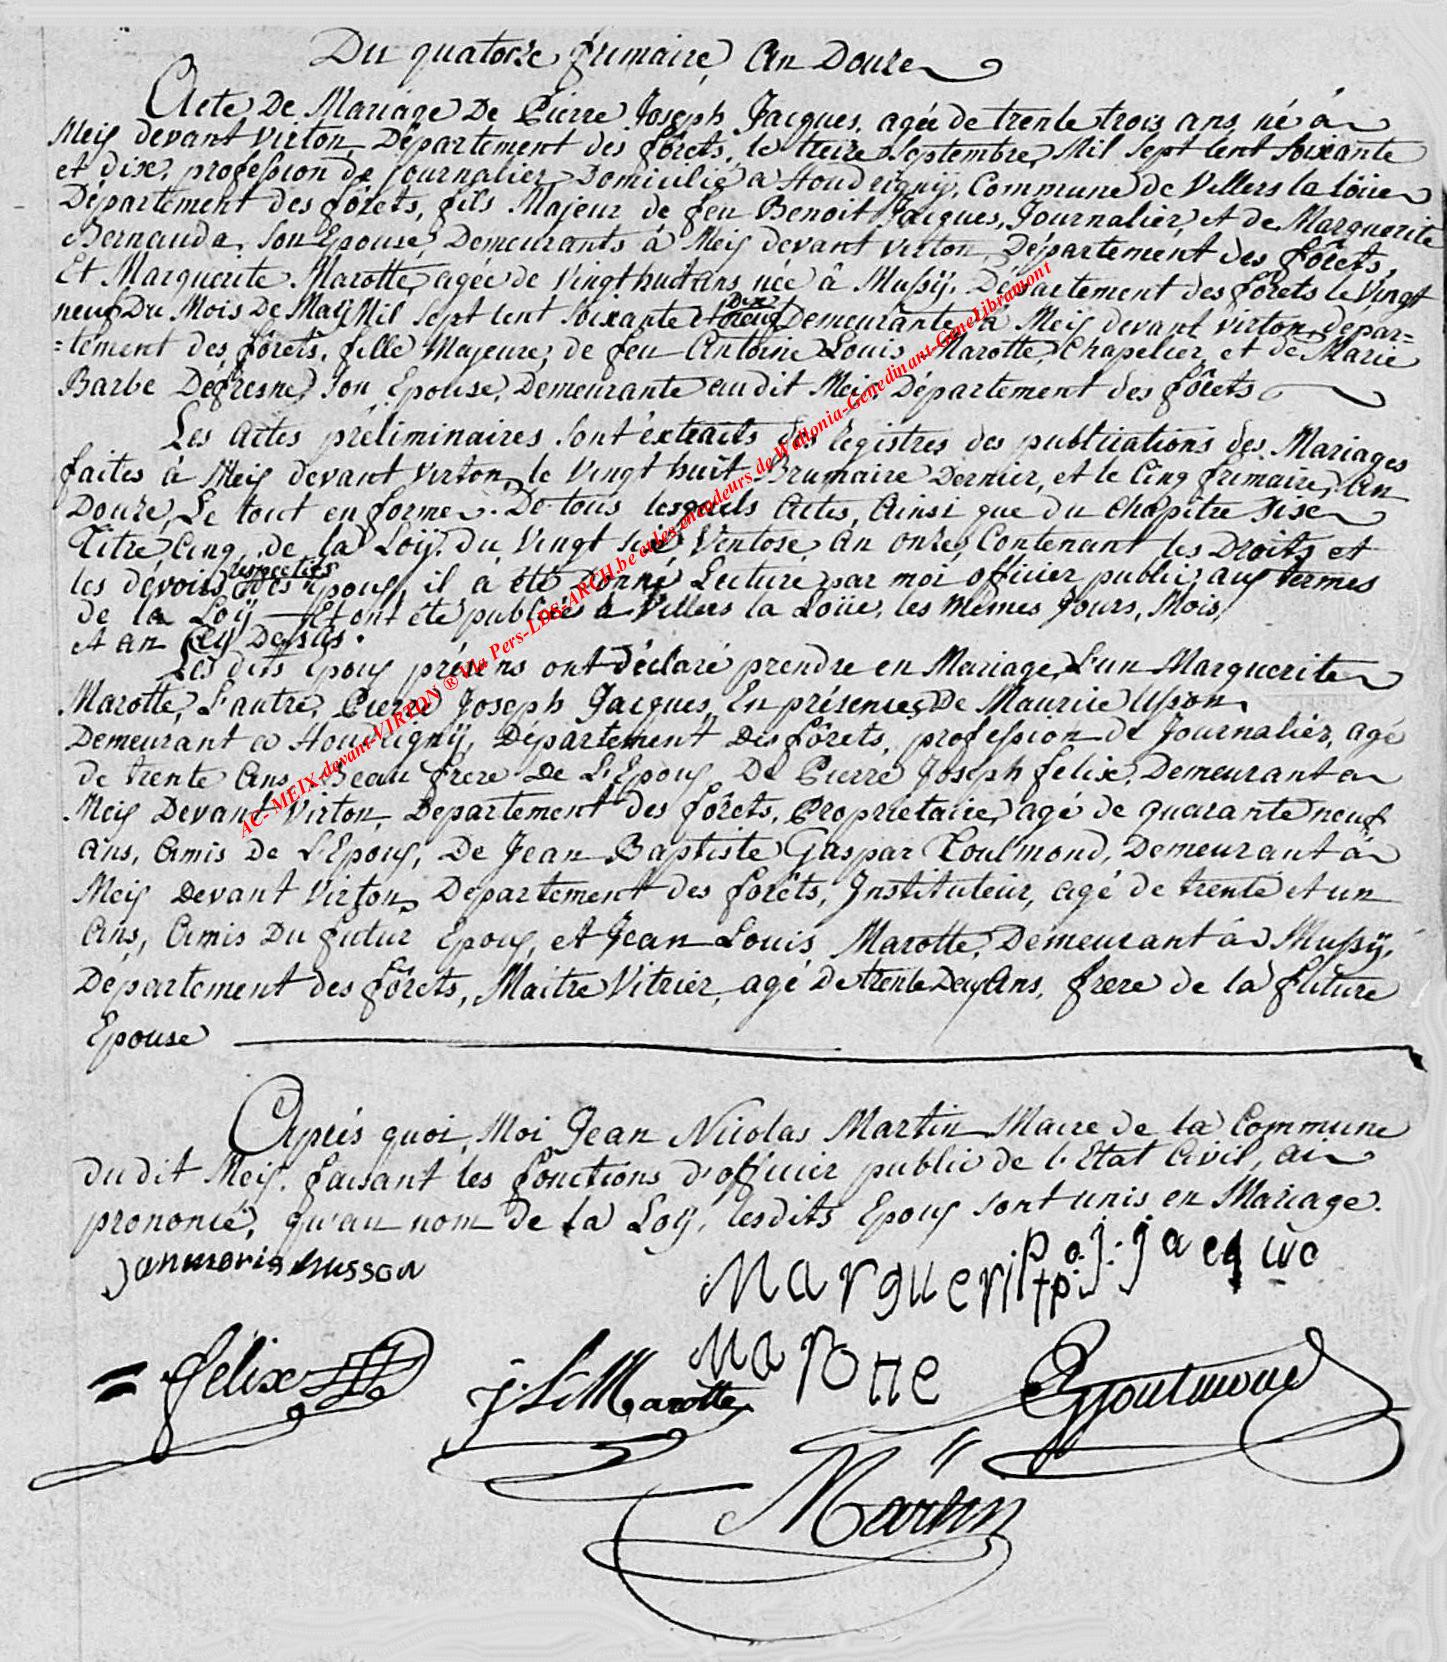 Du quatorze frimaire, an Douze
Acte De Mariage De Pierre Joseph Jacques, agée de trente trois ans, né à
Meix devant Virton Département des forêts, le treize Septembre, Mil Sept Cent Soixante
et dix, profession de Journalier, Domicilié à Houdrigny, Commune de Villers la Löüe
Département des forêts, fils Majeur de feu Benoit Jacques, Journalier, et de Marguerite
Bernauda, Son Epouse, Demeurants à Meix devant Virton, Département des forêts,
Et Marguerite Marotte, agée de Vingt huit ans née à Mussÿ, Département des forêts le Vingt
neuf Du Mois De Maÿ Mil Sept Cent Soixante et Dix neuf Demeurante à Meix devant Virton, depar=
=tement des forêts, fille Majeure, de feu Antoine Louis Marotte, Chapelier, et de Marie
Barbe Defresne, Son Epouse, Demeurante audit Meix Département des forêts
Les Actes préliminaires Sont éxtraits des Registres des publications des Mariages
faites à Meix devant Virton, le Vingt huit Brumaire Dernier, et le Cinq frimaire, An
Douze, Le tout en forme. De tous lesquels Actes, Ainsi que du Chapitre Sixe
Titre Cinq, de la Loÿ du Vingt Six Ventose, An onze, Contenant les Droits et
les dévoirs respectifs des Epoux, il à été Donné Lecture par moi officier public, aux termes
de la Loÿ Et ont été publié à Villers la Loüe, les Mêmes Jours, Mois,
et an Cy Dessus.
Les dits Epoux présens ont Déclaré prendre en Mariage, L'un Marguerite
Marotte, L'autre, Pierre Joseph Jacques, En présences De Maurice Usson
Demeurant à Houdrignÿ, Département Des forêts, profession de Journalier, agé
de trente Ans, Beau frere De L'Epoux, De Pierre Joseph felix, Demeurant à
Meix Devant Virton, Département des forêts, Propriétaire, agé de quarante neuf
ans, Amis De L'Epoux, De Jean Baptiste Gaspar Toulmond, Demeurant à
Meix Devant Virton, Département des forêts, Instituteur, agé de trente et un
Ans, Amis Du futur Epoux, et Jean Louis Marotte, Demeurant à Mussÿ,
Département des forêts, Maitre Vitrier, agé De trente Deux Ans, frere de la future
Epouse
Après quoi, Moi Jean Nicolas Martin Maire de la Commune
du dit Meix, faisant les fonctions d'officier public de l'Etat Civil, ai
prononcé, qu'au nom De la Loÿ, lesdits Epoux sont unis en Mariage.
Janmoris husson
p.j. jacque
Marguerit
Marotte
felix
J L Marotte
Martin
AC- MEIX-devant-VIRTON ® Via Pers-LDS-ARCH.be et les encodeurs de Wallonia-Genedinant-GeneLibramont